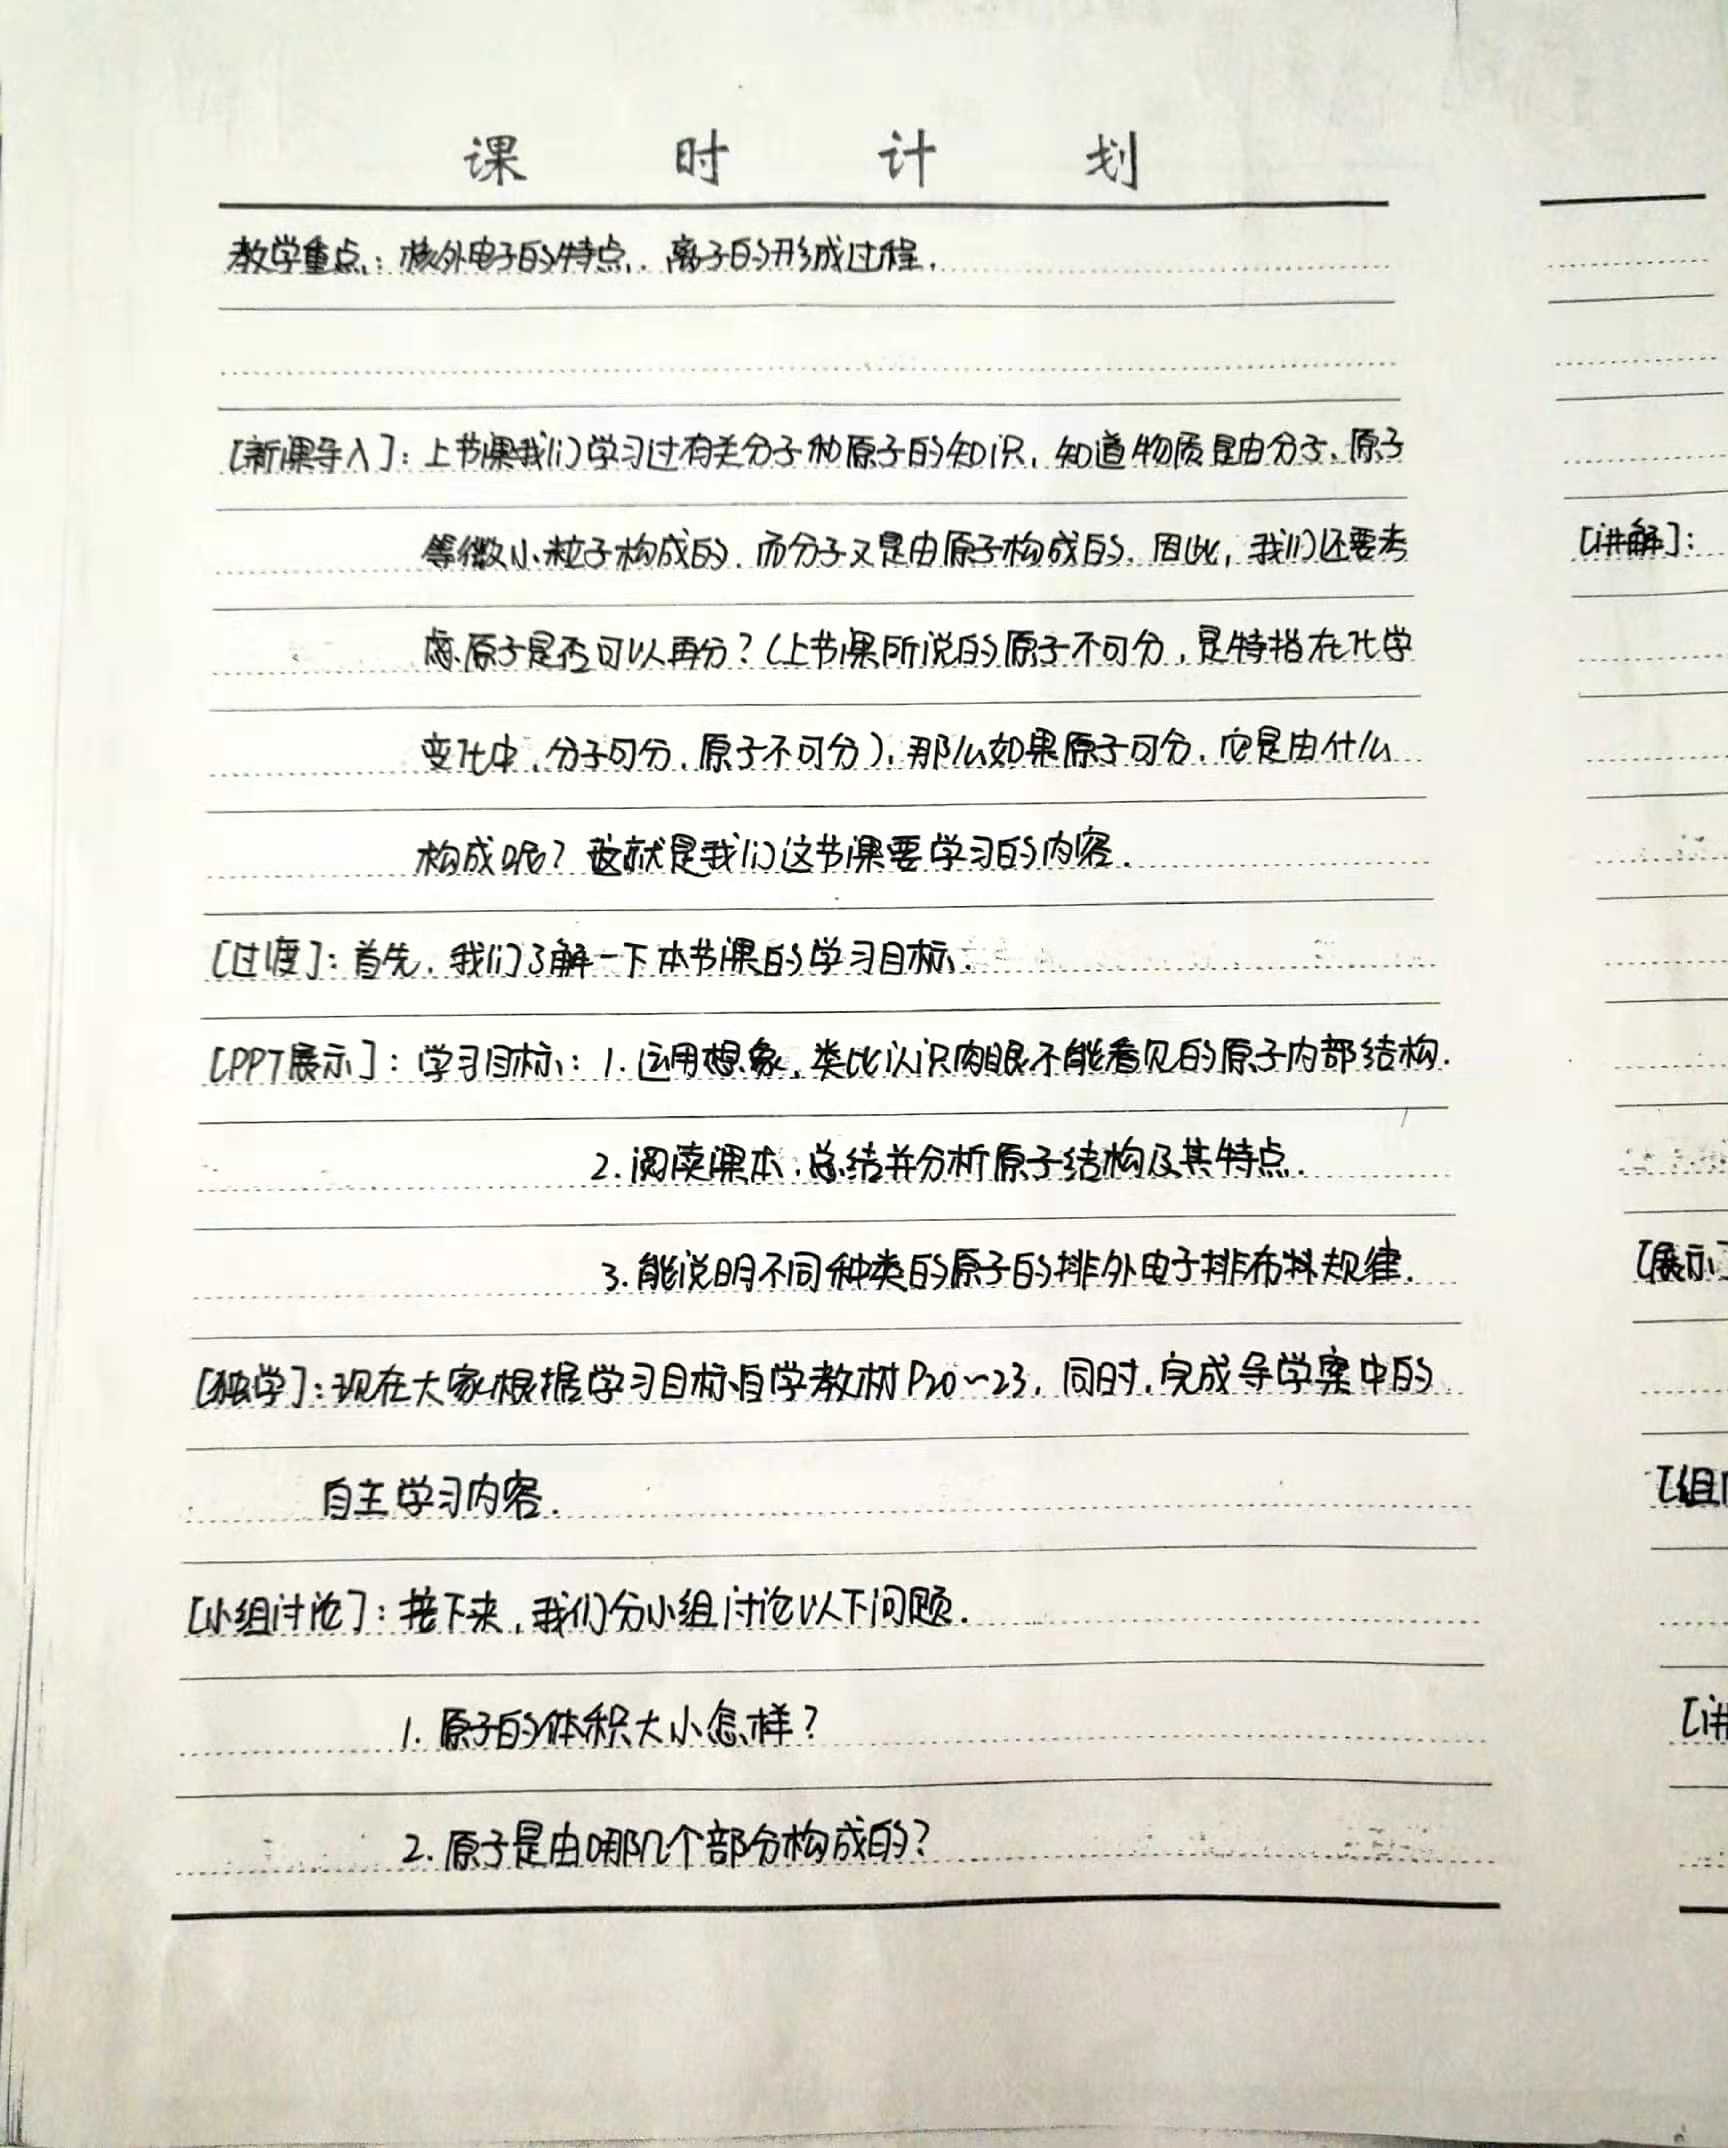 课时计划
教学重点：核外电子的特点、离子的形成过程.
[新课导入]：上节课我们学习过有关分子和原子的知识，知道物质是由分子、原子
等微小粒子构成的，而分子又是由原子构成的，因此，我们还要考
虑原子是否可以再分？(上节课所说的原子不可分，是特指在化学
变化中，分子可分，原子不可分)，那么如果原子可分，它是由什么
构成呢？这就是我们这节课要学习的内容.
[过渡]：首先，我们了解一下本节课的学习目标.
[PPT展示]：学习目标：1.运用想象，类比认识肉眼不能看见的原子内部结构.
2.阅读课本，总结并分析原子结构及其特点.
3.能说明不同种类的原子的排外电子排布料规律.
[独学]：现在大家根据学习目标自学教材P20~23，同时，完成导学案中的
自主学习内容.
[小组讨论]：接下来，我们分小组讨论以下问题.
1.原子的体积大小怎样？
2.原子是由哪几个部分构成的？
[讲解]：
[展示]
[组
[讲